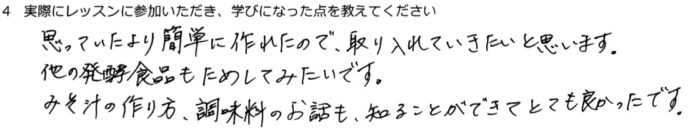 4 実際にレッスンに参加いただき、学びになった点を教えてください
思っていたより簡単に作れたので、取り入れていきたいと思います。
他の発酵食品もためしてみたいです。
みそ汁の作り方、調味料のお話も、知ることができてとても良かったです。